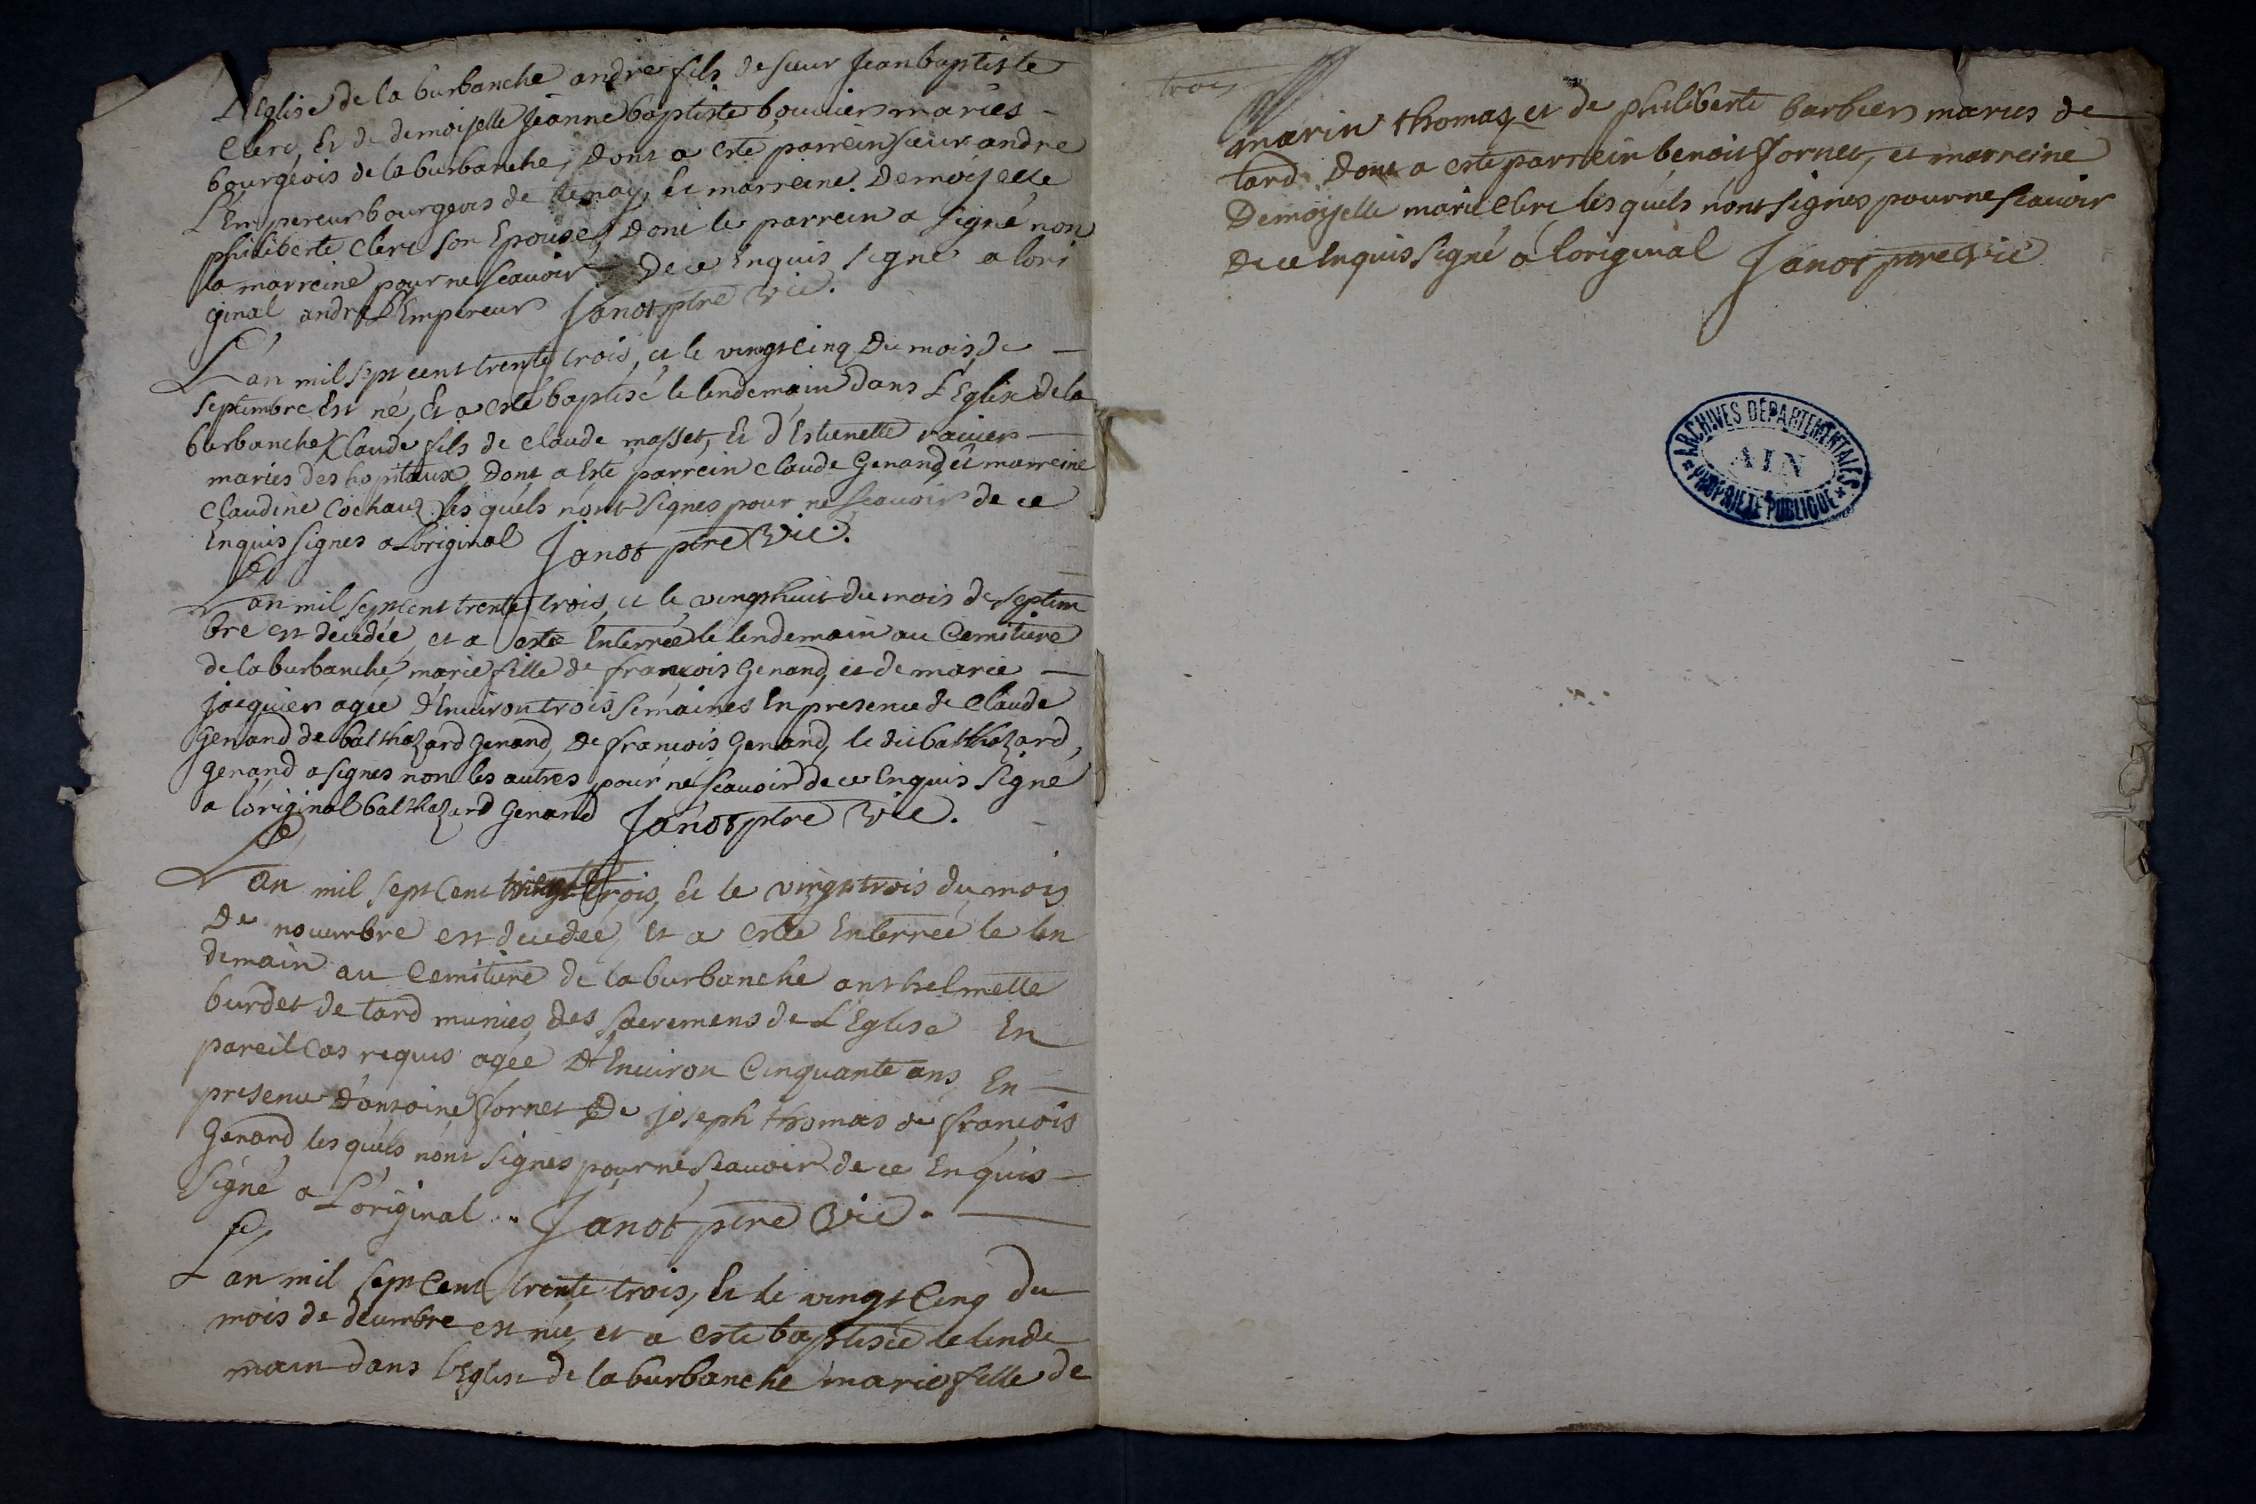 L'Eglise de la burbanche andre fils de sieur Jean baptiste
Clerc, Et de demoiselle Jeanne baptiste bouvier maries
bourgeois de la burbanche, dont a esté parrein sieur andre
L'Empereur bourgeois de tenay, et marreine Demoiselle
philiberte Clerc son Epouse, dont le parrein a signé non
la marreine pour ne scavoir de ce Enquis signé a lori
ginal andre L'Empereur Janot ptre vic.
L'an mil sept cent trente trois, et le vingt cinq du mois de
septembre Est né, Et a esté baptisé le lendemain dans L'Eglise de la
burbanche Claude fils de Claude masset, Et d'Estienette ravier
maries des hopitaux, Dont a Esté parrein claude Genand, et marreine
Claudine Cochaud lesquels n'ont signes pour ne scavoir de ce
Enquis signes a Loriginal Janot ptre vic.
L'an mil sept cent trente trois, et le vingt huit du mois de septem
bre est décédée, et a esté Enterrée le lendemain au Cemitiere
de la burbanche, marie fille de françois Genand, et de marie
Jacquier agée d'Environ trois semaines En presence de Claude
Genand de balthazard Genand, De françois Genand, le dit balthazard
Genand a signes non les autres pour ne scavoir de ce Enquis signé
a l'original balthazard Genand Janot ptre vic.
L'an mil sept Cent trois, Et le vingt trois du mois
De novembre est decedée, et a esté Enterrée le len
demain au Cemitiere de la burbanche anthelmette
burdet de tard munies des sacremens de L'Eglise En
pareil Cas requis agée D'Environ Cinquante ans En
presence d'antoine fornet De joseph thomas de françois
Genand, lesquels n'ont signes pour ne scavoir de ce Enquis
signé a L'original .. Janot ptre vic.
L'an mil sept Cent trente trois, Et le vingt Cinq du
mois de decembre est née, et a esté baptisée le lende
main dans l'Eglise de la burbanche marie fille de
trois
marin thomas et de philiberte barbier maries de
tard Dont a esté parrein benoit fornet, et marreine
Demoiselle marie clerc lesquels n'ont signes pour ne scavoir
de ce Enquis signé a l'original Janot ptre vic
ARCHIVES DÉPARTEMENTALES
AIN
PROPRIÉTÉ PUBLIQUE